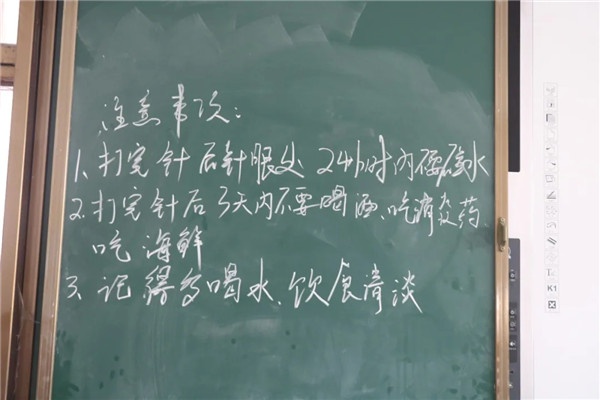 注意事项：
1、打完针后针眼处24小时内不要碰水
2.打完针后3天内不要喝酒、吃消炎药
吃海鲜
3、记得多喝水、饮食清谈
T
K1